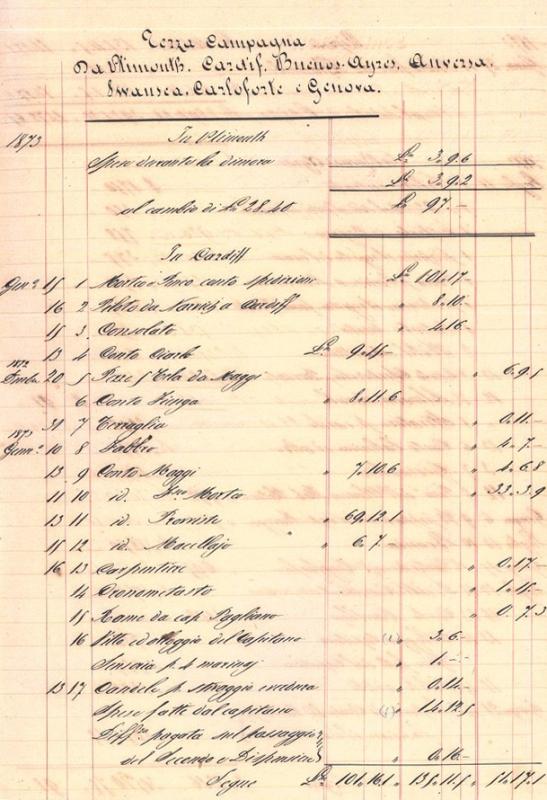 Terza Campagna
Da Plimouth. Cardif. Buenos-Ayres. Anversa.
Swansea. Carloforte e Genova.
1873 In Plimouth
Spese durante la dimora L.ˢ 3„9„6
L.ˢ 3„9„2
al cambio di L.ⁿ 28.40 L.ⁿ 97„-
In Cardiff
Genn.º 15 1 conto spedizione L.ˢ 101„17„-
16 2 Piloto da a Cardiff „ 8„10„-
15 3 Consolato „ 4„16„-
13 4 Conto L.ˢ 9„15„-
1872
Dmbe 20 5 Pezze 5 Tela da Maggi „ 6„9„5
6 Conto „ 8„11„6
31 7 Terraglia „ 0„11„-
1873
Genn.º 10 8 Fabbro „ 4„7„-
13 9 Conto Maggi „ 7„10„6 „ 4„6„8
11 10 id. „ 33„3„9
13 11 id. Provviste „ 69„12„1
15 12 id. Macellajo „ 6„7„-
16 13 Carpentiere „ 0„17„-
14 Cronometasto „ 1„15„-
15 Rame da cap. Pagliano „ 0„7„3
16 Vitto ed alloggio del Capitano (1) „ 3„6„-
Senseria p. 4 marinaj „ 1„-„-
13 17 Candele p. „ 0„14„-
Spese fatte dal capitano (1) „ 14„12„5
Diff.ª pagata sul passaggio
del Secondo e Dispensiere „ 0„16„-
Segue L.ˢ 101„16„1 „ 135„11„5 „ 51„17„1